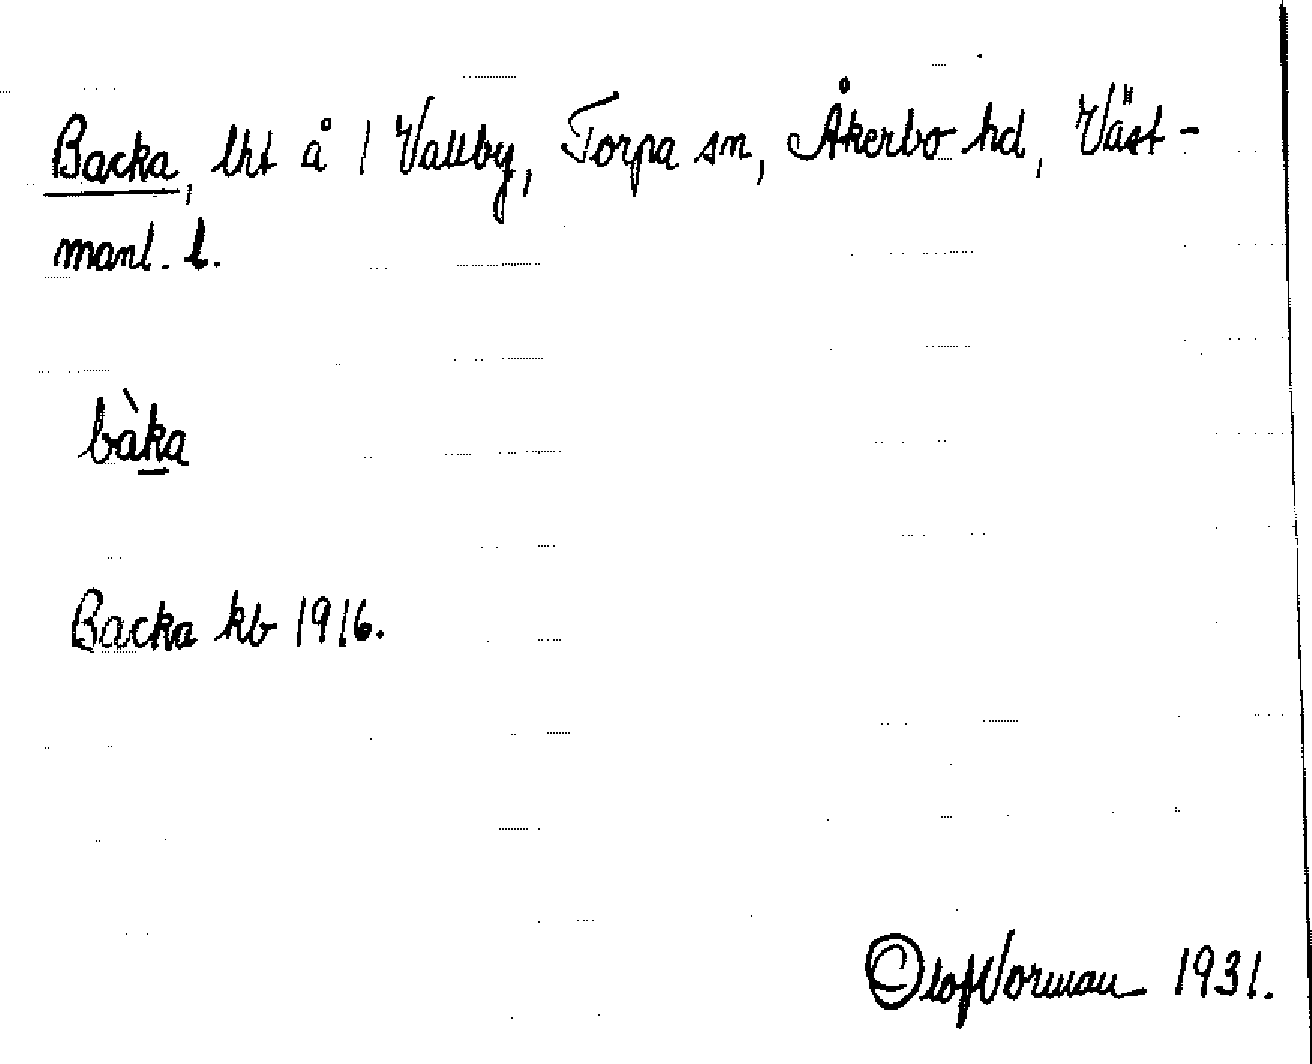 Backa, lht å 1 Vallby, Torpa sn, Åkerbo hd, Väst-
manl. l.
bàka
Backa kb 1916.
Olof Norman 1931.